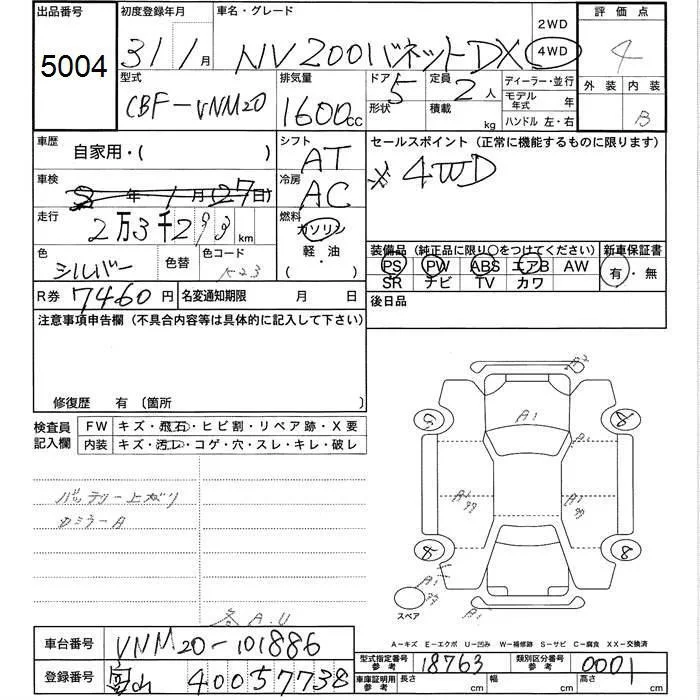 出品番号 初度登録年月 車名・グレード 評価点
5004 31/1月 NV200バネットDX 2WD 4WD 4
型式 排気量 ドア 定員 ディーラー・並行 外装 内装
CBF-VNM20 1600cc 5 2人 モデル年式 年 B
形状 積載 kg ハンドル 左・右
車歴 自家用・( ) シフト AT セールスポイント(正常に機能するものに限ります)
※4WD
車検 年1月27日) 冷房 AC
走行 2万3千2 km 燃料 ガソリン 軽・油 ( )
色 シルバー 色替 色コード K23
装備品(純正品に限り○をつけてください) 新車保証書
PS PW ABS エアB AW 有・無
SR ナビ TV カワ
R券 7460円 名変通知期限 月 日 後日品
注意事項申告欄(不具合内容等は具体的に記入して下さい)
修復歴 有 (箇所
検査員記入欄 FW キズ・飛石・ヒビ割・リペア跡・X要
内装 キズ・汚レ・コゲ・穴・スレ・キレ・破レ
バッテリー上がり
A2
A1
8
A1
A1
8
A1
スペア
各A.U
A－キズ E－エクボ U－凹み W－補修跡 S－サビ C－腐食 XX－交換済
車台番号 VNM20-101886
型式指定番号参考 18763 類別区分番号参考 0001
登録番号 富山 400 5 7738
車庫証明用参考 長さ cm 幅 cm 高さ cm